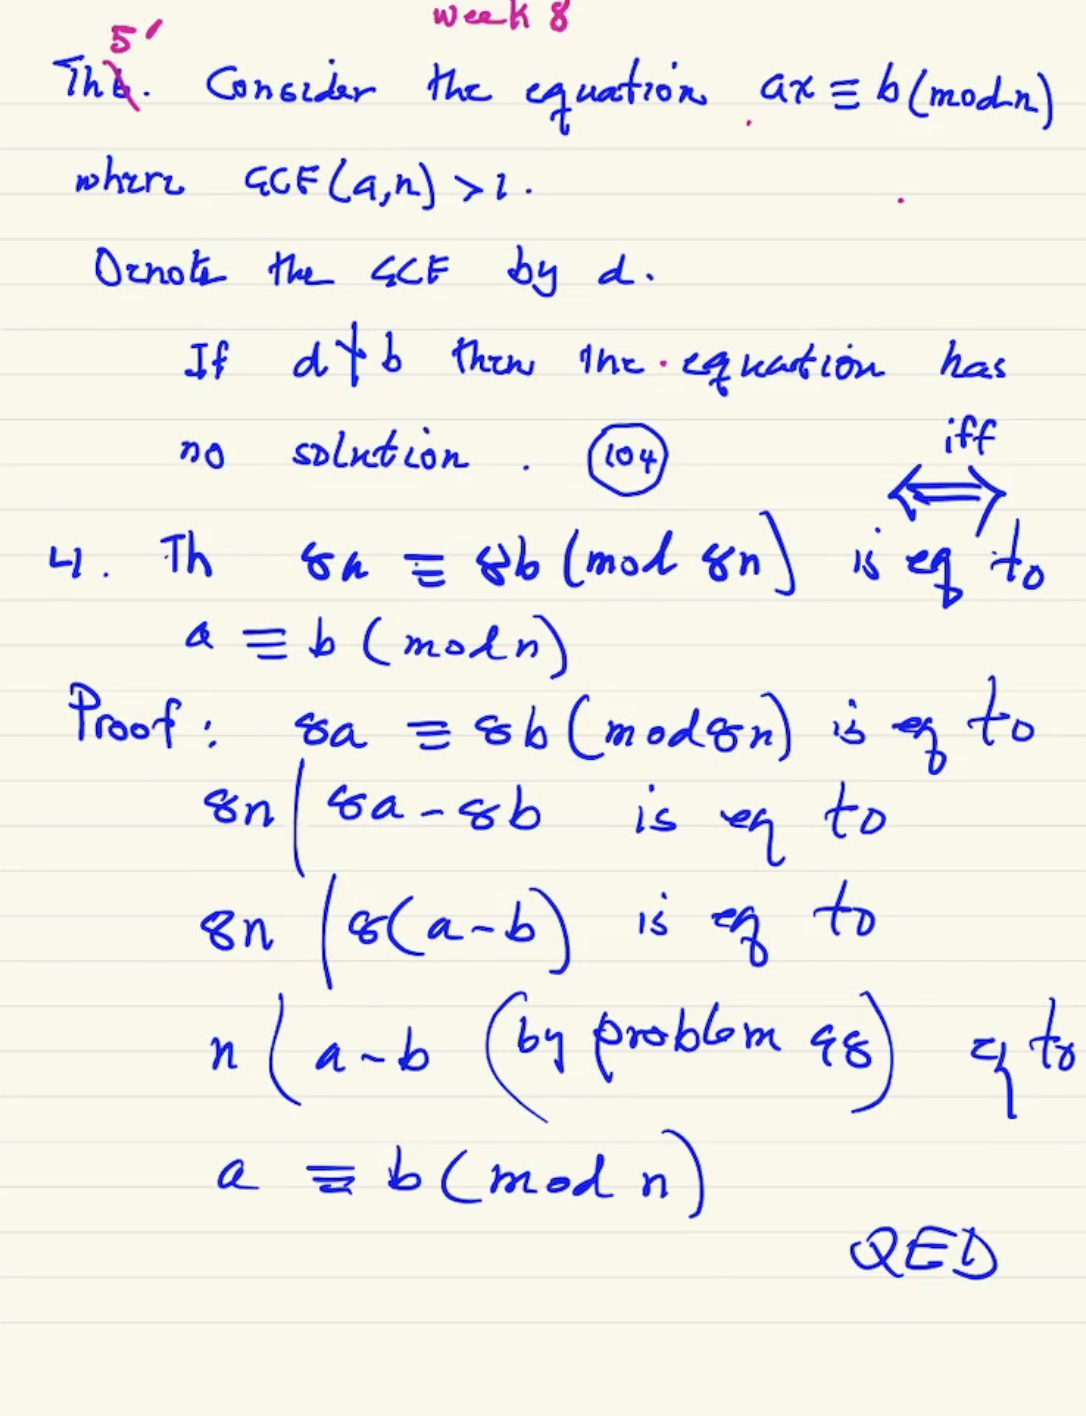 week 8
5'
Th. Consider the equation ax ≡ b (mod n)
where GCF(a,n) > 1.
Denote the GCF by d.
If d ∤ b then the equation has
no solution. (104)
iff
⟺
4. Th 8a ≡ 8b (mod 8n) is eq to
a ≡ b (mod n)
Proof: 8a ≡ 8b (mod 8n) is eq to
8n | 8a - 8b is eq to
8n | 8(a-b) is eq to
n | a-b (by problem 98) eq to
a ≡ b (mod n)
QED